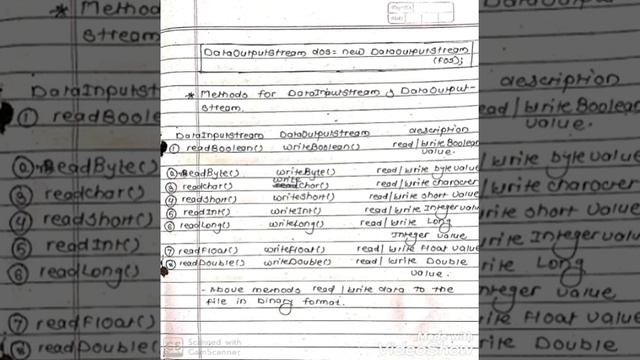 DataOutputStream dos = new DataOutputStream
(fos);
* Methods for DataInputStream & DataOutput-
stream.
DataInputStream DataOutputStream description
① readBoolean() writeBoolean() read/write Boolean
value.
② ReadByte() writeByte() read/write byte value
③ readchar() writechar() read/write character
④ readshort() writeshort() read/write short value
⑤ readInt() writeInt() read/write Integer value
⑥ readLong() writeLong() read/write Long
Integer value
⑦ readFloat() writeFloat() read/write Float value
⑧ readDouble() writeDouble() read/write Double
value.
- Above methods read/write data to the
file in binary format.
Scanned with
CamScanner
Made with
VideoShow